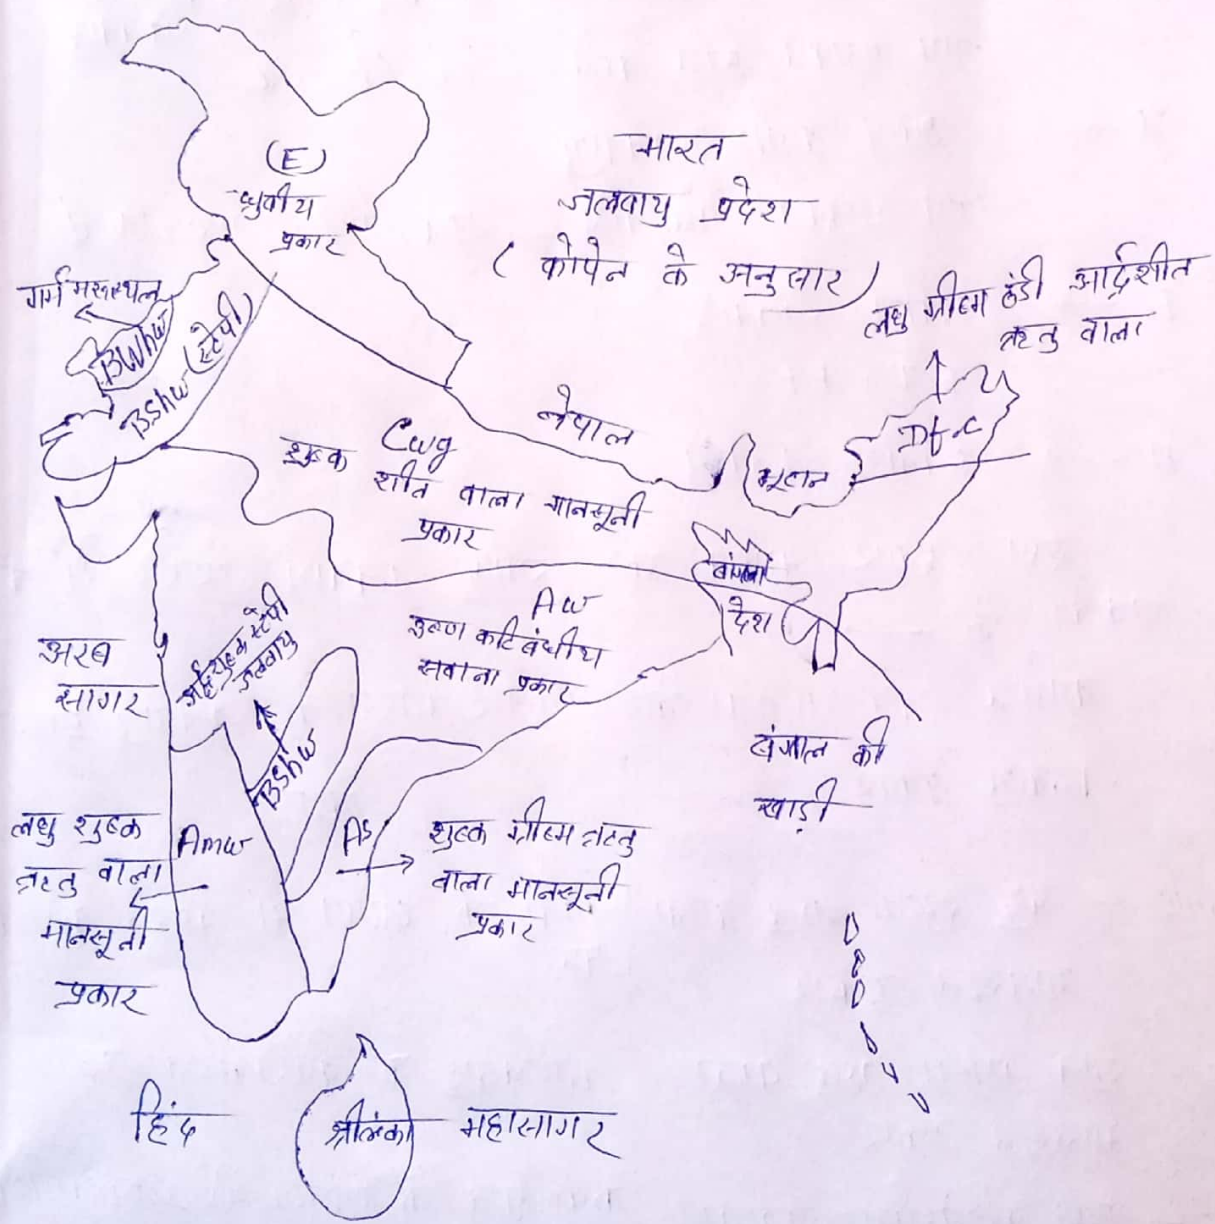 भारत
जलवायु प्रदेश
( कोपेन के अनुसार )
(E)
ध्रुवीय
प्रकार
गर्म मरुस्थल
BWhw
BShw (स्टेपी)
लघु ग्रीष्म ठंडी आर्द्रशीत
ऋतु वाला
Dfc
नेपाल
भूटान
Cwg
शुष्क
शीत वाला मानसूनी
प्रकार
बांग्ला
देश
Aw
उष्ण कटिबंधीय
सवाना प्रकार
अरब
सागर
अर्द्धशुष्क स्टेपी
जलवायु
BShw
बंगाल की
खाड़ी
लघु शुष्क
ऋतु वाला
मानसूनी
प्रकार
Amw
As
शुष्क ग्रीष्म ऋतु
वाला मानसूनी
प्रकार
हिंद
श्रीलंका
महासागर